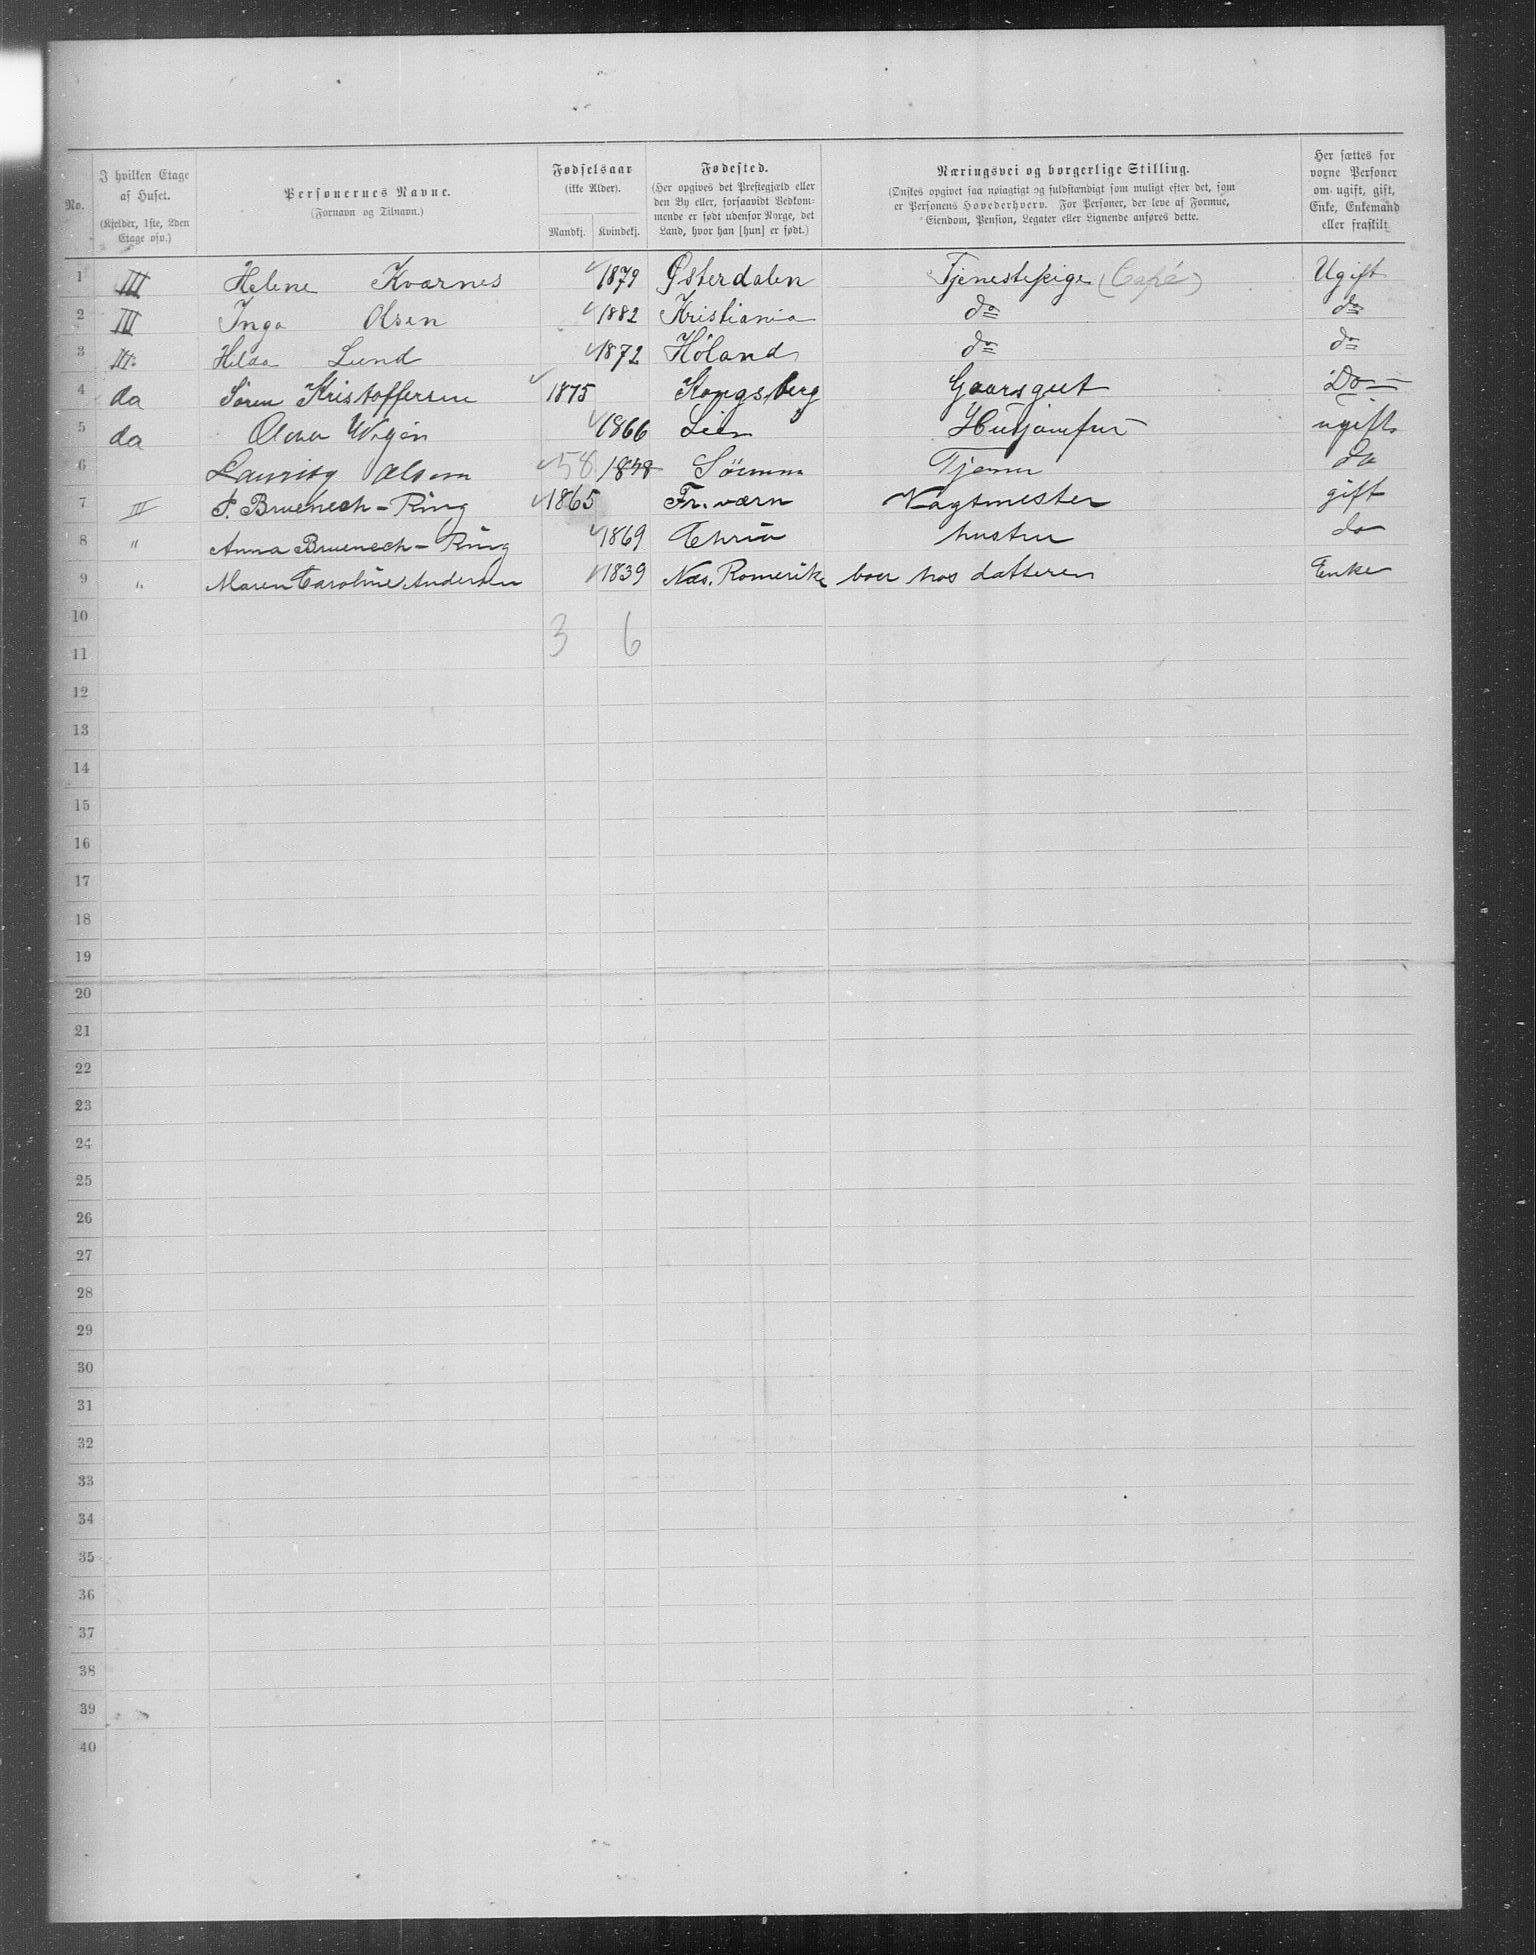 No.
I hvilken Etage af Huset. (Kjelder, 1ste, 2den Etage osv.)
Personernes Navne. (Fornavn og Tilnavn.)
Fødselsaar (ikke Alder). Mandkj. Kvindekj.
Fødested. (Her opgives det Prestegjæld eller den By eller, forsaavidt Vedkommende er født udenfor Norge, det Land, hvor han [hun] er født.)
Næringsvei og borgerlige Stilling. (Ønskes opgivet saa nøiagtigt og fuldstændigt som muligt efter det, som er Personens Hovederhverv. For Personer, der leve af Formue, Eiendom, Pension, Legater eller Lignende anføres dette.
Her sættes for voxne Personer om ugift, gift, Enke, Enkemand eller fraskilt
1 III Helene Kvarnes 1879 Østerdalen Tjenestepige (Café) Ugift
2 III Inga Olsen 1882 Kristiania do do
3 III Hilda Lund 1872 Høland do do
4 do Søren Kristoffersen 1875 Kongsberg Gaarsgut Do
5 do 1866 Lier Husjomfru ugift
6 Lauritz Olsen 58 1848 Tjener do
7 III P. Bruenech-Ring 1865 Fr.værn Vagtmester gift
8 " Anna Bruenech-Ring 1869 Xhria hustru do
9 " Maren Caroline Andersen 1839 Næs, Romerike boer hos datteren Enke
10
3 6
11
12
13
14
15
16
17
18
19
20
21
22
23
24
25
26
27
28
29
30
31
32
33
34
35
36
37
38
39
40